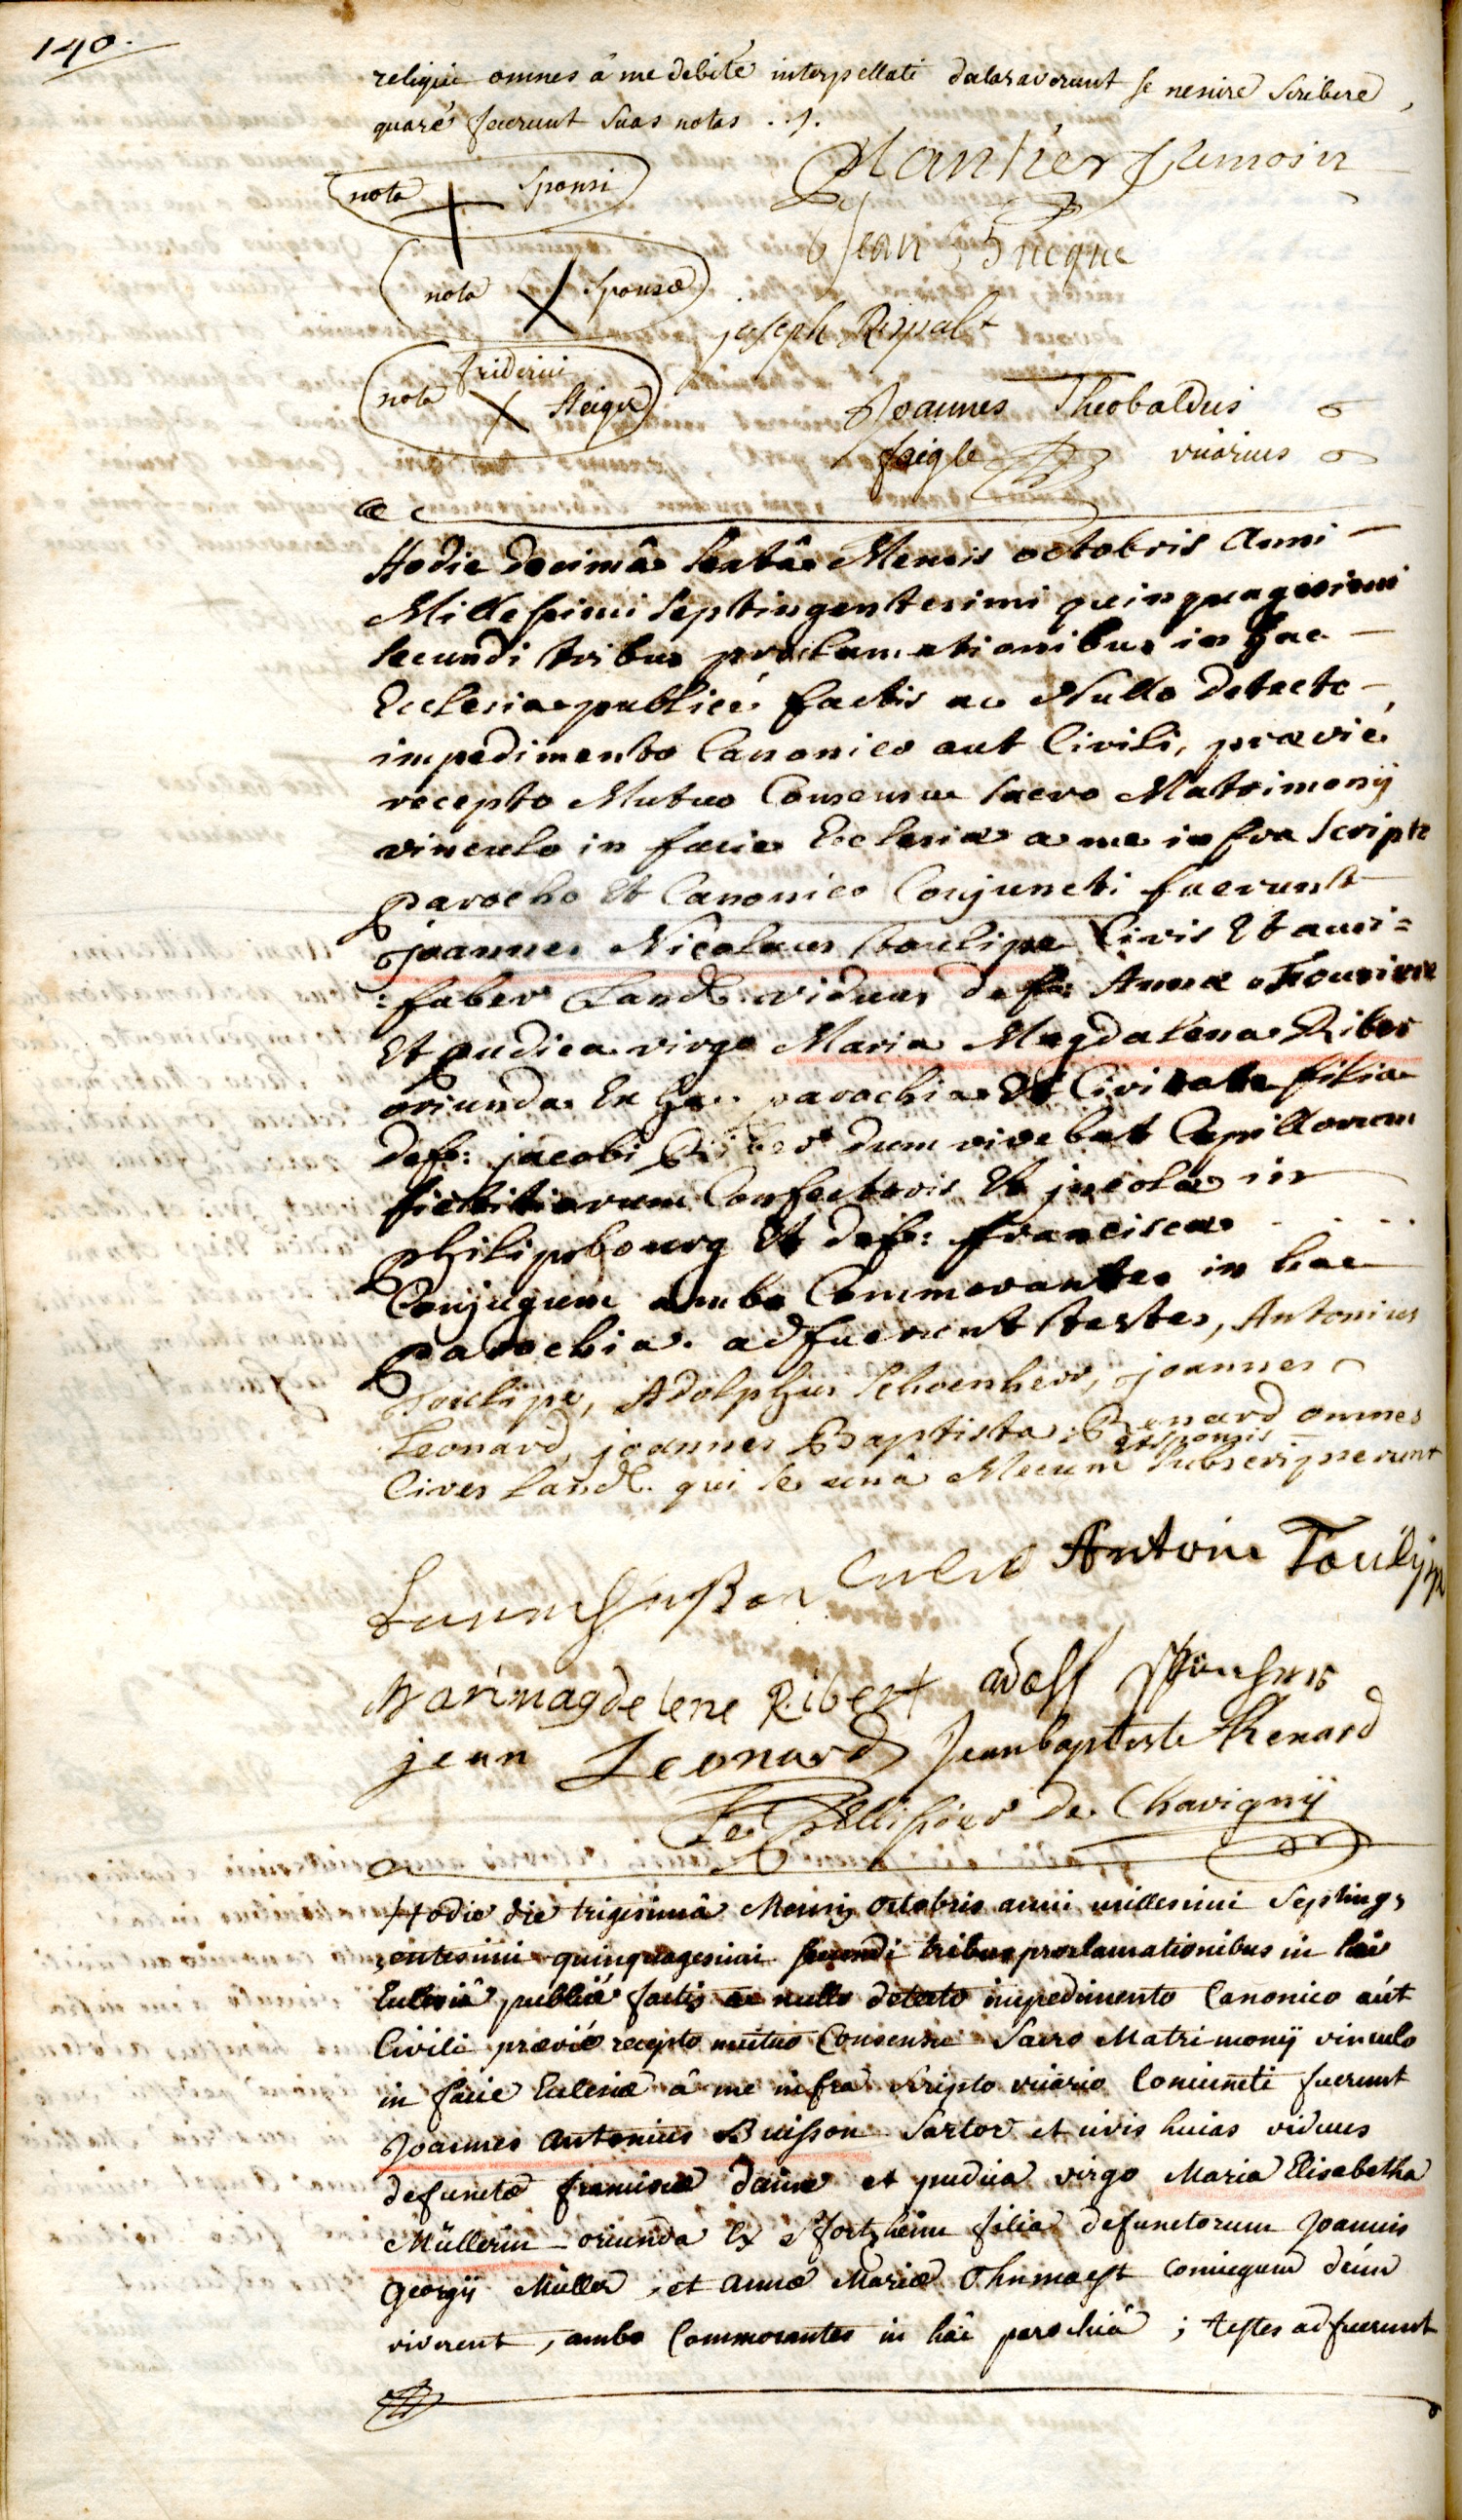 140.
reliqui omnes â me debitè interpellati declaraverunt se nescire scribere,
quarè fecerunt suas notas ./.
nota Sponsi
nota Sponsæ
nota friderici Steiger
temoin
Jean
joseph
Joannes Theobaldus
faigle vicarius
Hodie decimâ sextâ Mensis octobris Anni
Millesimi septingentesimi quinquagesimi
secundi tribus proclamationibus in hac
Ecclesia publicè factis ac Nullo detecto
impedimento Canonico aut Civili, prævie
recepto Mutuo Consensu sacro Matrimonij
vinculo in facie Ecclesiæ a me infra scripto
parocho et Canonico Conjuncti fuerunt
joannes Nicolaus toulipe Civis Et auri=
=faber Land. viduus def:
Et pudica virgo Maria Magdalena Riber
oriunda Ex hac parochia Et Civitate filia
def: jacobi Riber dum vivebat Capillorum
fictitiorum Confectoris Et jncolæ in
philipsbourg Et def: franciscæ . . . .
Conjugum ambo Commorantes in hac
parochia. adfuerunt testes, Antonius
Toulipe, Adolphus Schoenherr, joannes
Leonard, joannes Baptista Renard omnes
Cives Land. qui se unâ Mecum Et sponsis subscripserunt
Antoine Toulip
Marimagdelene Ribert adolf
jean Leonard Jean baptiste Renard
Le Pellissier de Chavignÿ
Hodie die trigesimâ Mensis octobris anni millesimi septing=
=entesimi quinquagesimi secundi tribus proclamationibus in hac
Ecclesiâ publicè factis ac nullo detecto impedimento Canonico aút
Civili præviè recepto mutuo Consensu Sacro Matrimonij vinculo
in facie Ecclesiæ â me infra scripto vicario Coniuncti fuerunt
Joannes Antonius Buisson Sartor et civis huias viduus
defunctæ franciscæ et pudica virgo Maria Elisabetha
Müllerin oriunda Ex Pfortzheim filia defunctorum Joannis
Georgij Müller, et Annæ Mariæ Coniugum dum
viverent, ambo Commorantes in hâc parochiâ; testes adfuerunt